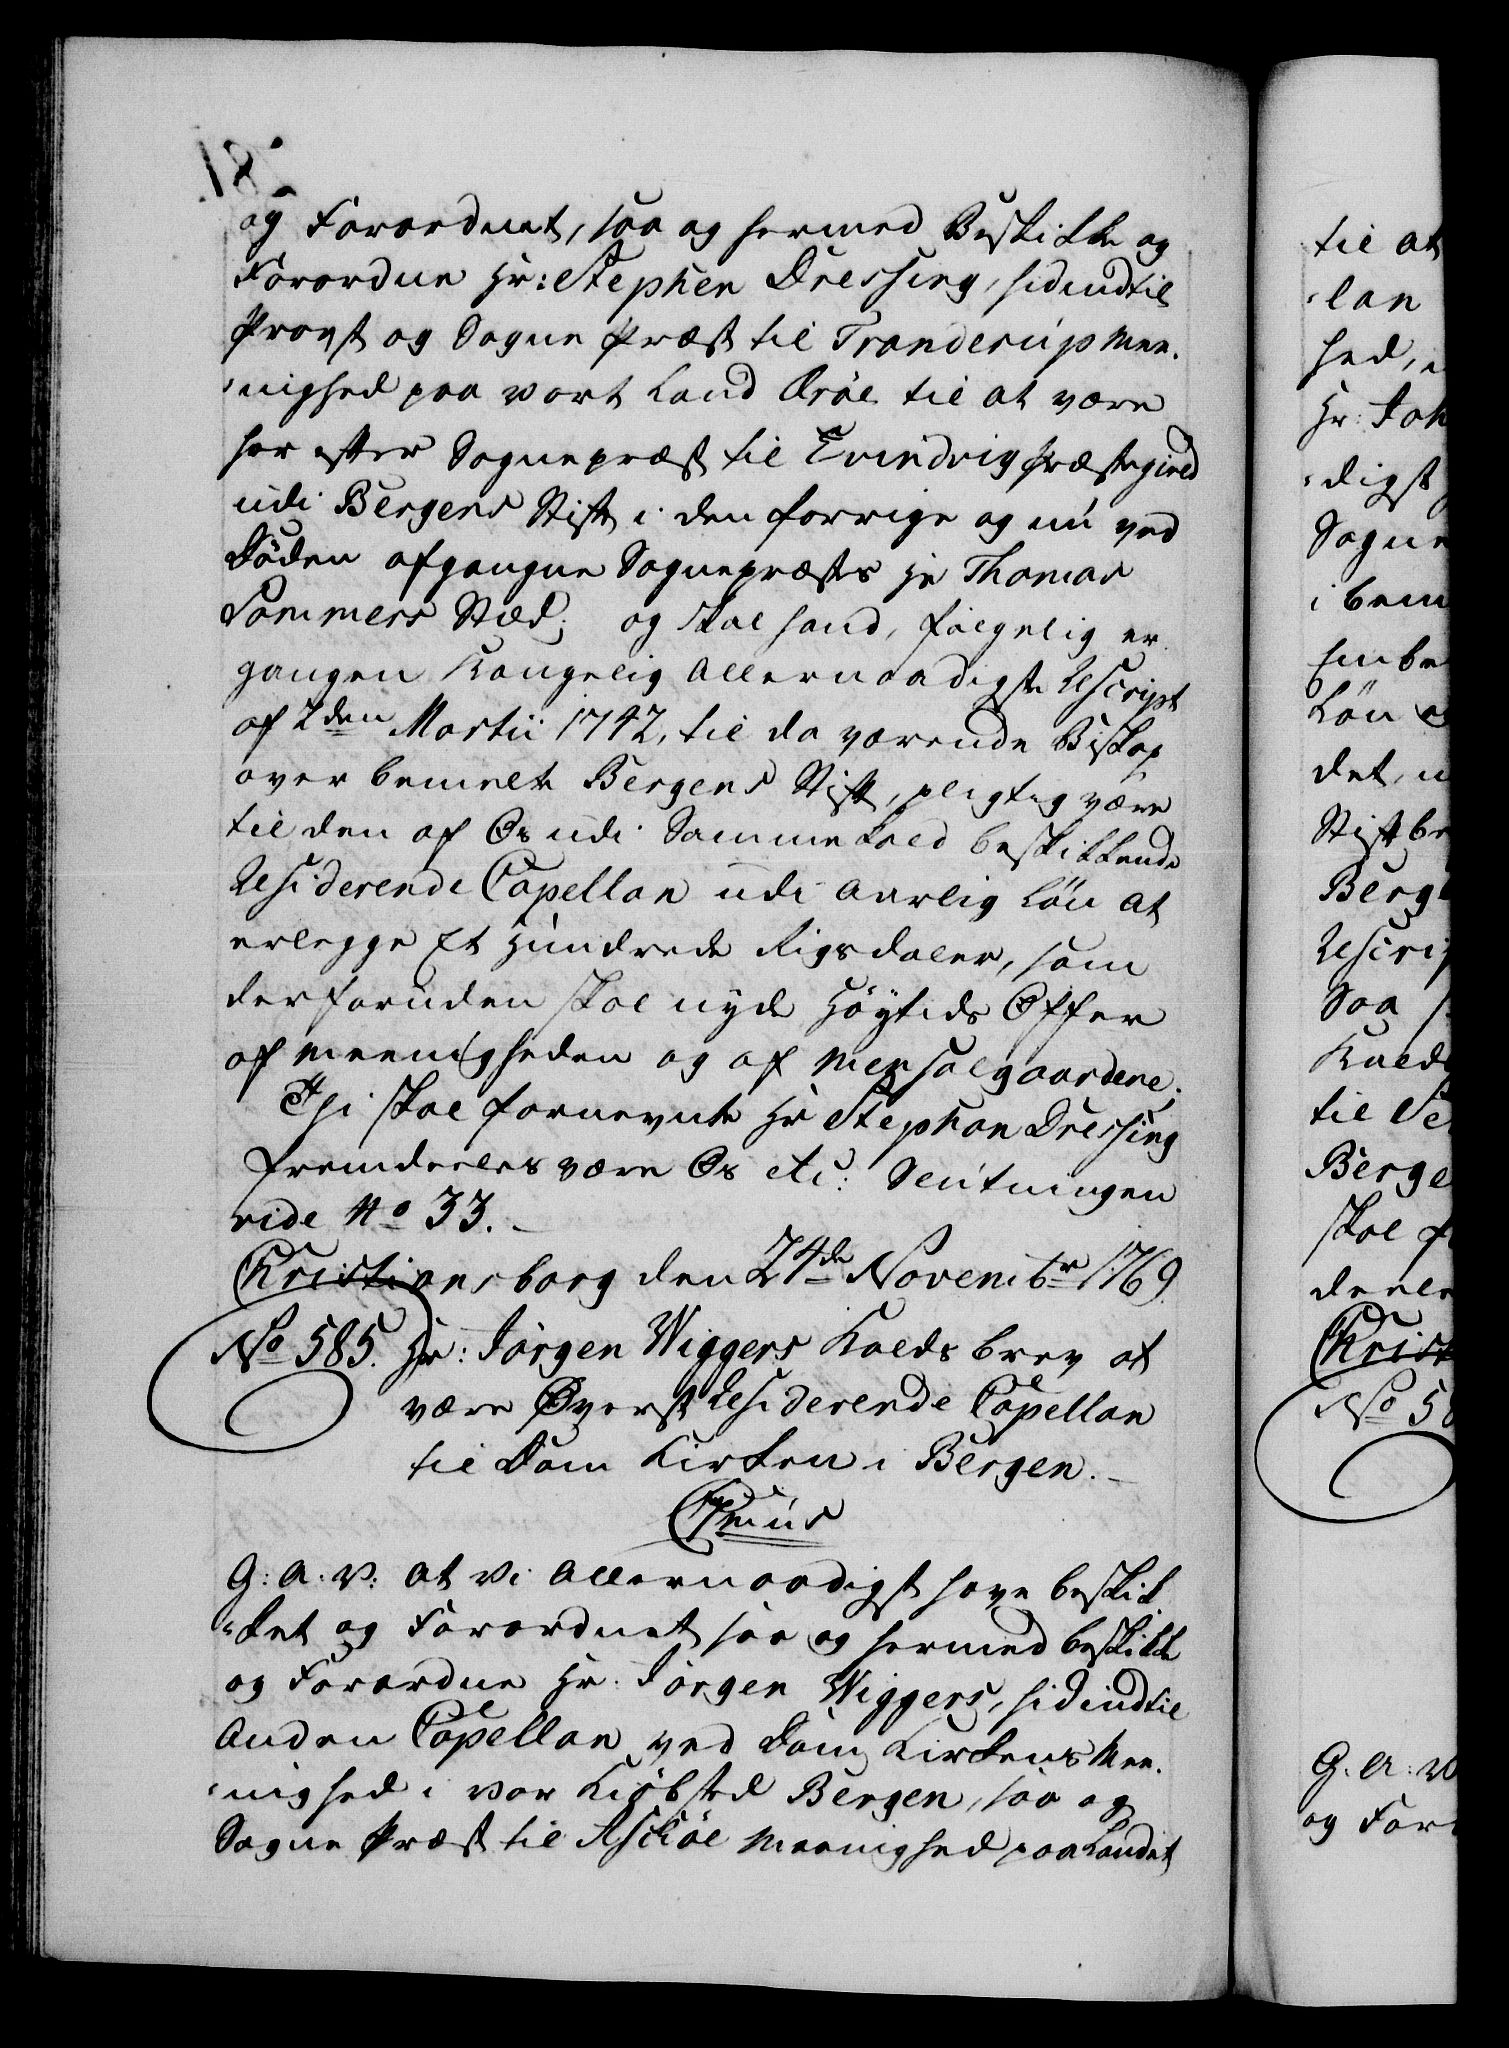 og Forordnet, saa og hermed Beskikke og
Forordne Hr: Stephen Dressing, hidindtil
Provst og Sogne Præst til Tranderup Mee-
-nighed paa vort Land Æröe til at være
her efter Sognepræst til Evindvig Præstegield
udi Bergens Stift i den forrige og nu ved
Döden afgangne Sognepræstes Hr Thomas
Sommers Stæd; og skal hand, fölgelig er
gangen Kongelig Allernaadigste Rescript
af 2den Martii 1742, til da værende Biskop
over bemelte Bergens Stift, pligtig være
til den af Os udi Samme Kald beskikkende
Residerende Capellan udi Aarlig Lön at
erlegge Et Hundrede Rigsdaler, som
derforuden skal nyde Höytids Offer
af Meenigheden og af Mensalgaardene.
Thi skal fornevnte Hr Stephan Dressing
fremdeeles være Os etc: Slutningen
vide No 33.
Christiansborg den 24de Novembr 1769
No 585. Hr: Jörgen Wiggers Kalds brev at
være Øverst Residerende Capellan
til Dom Kirken i Bergen.
Cptmus
G: A: V: At Vi Allernaadigst have beskik
-ket og Forordnet saa og hermed beskikke
og Forordne Hr: Jörgen Wiggers, hidindtil
Anden Capellan ved Dom Kirkens Mee-
-nighed i vor Kiöbsted Bergen, saa og
Sogne Præst til Askiöe Meenighed paa Landet
til at
-lan
hed,
Hr: Joh
-digst
Sogne
i bem
Embe
Lön
det,
Stift be
Berg
Rescrip
Saa
Kald
til Se
Berge
skal f
deele
Christ
No 5
G. A: V
og For